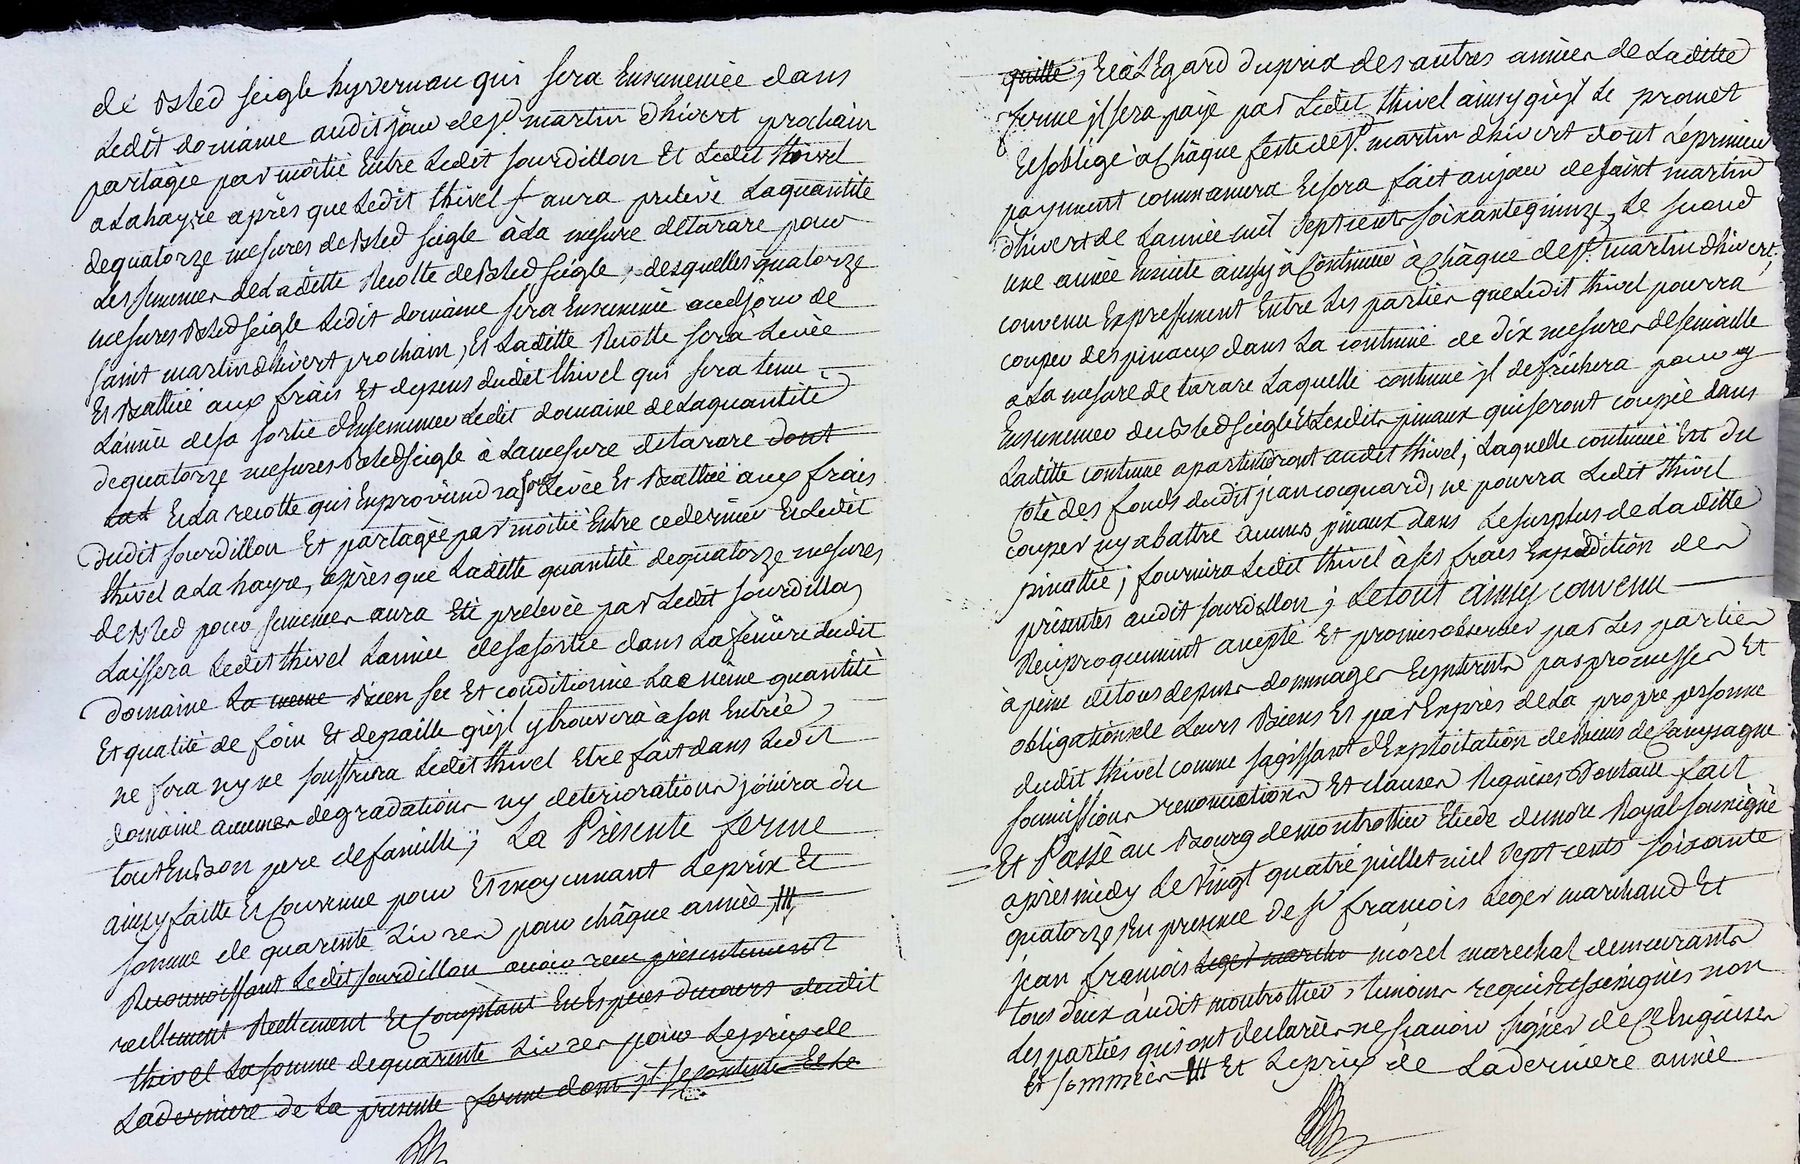 de bled seigle hyvernau qui sera Ensemencée dans
Ledit domaine audit jour de st martin d'hivert prochain
partagée par moitié Entre Ledit sourdillon Et Ledit thivel
a La hayre après que Ledit thivel + aura prelevé La quantité
de quatorze mesures de bled seigle à La mesure de tarare pour
Les semences de La ditte Recolte de bled seigle, desquelles quatorze
mesures bled seigle Ledit domaine sera Ensemencé audjour de
saint martin d'hivert prochain, Et Laditte Recolte sera Levée
Et Battue aux frais Et depens dudit thivel qui sera tenu
L'année de sa sortie d'Ensemencer Ledit domaine de La quantité
de quatorze mesures bled seigle à La mesure de tarare dont
Et La recolte qui En proviendra sera Levée Et Battue aux frais
dudit sourdillon Et partagée par moitié Entre ce dernier Et Ledit
thivel a La hayre, après que Laditte quantité de quatorze mesures
de bled pour semences aura Eté prelevée par Ledit sourdillon,
Laissera Ledit thivel L'année de sa sortie dans La feniere dudit
domaine La meme bien sec Et conditionné La même quantité
Et qualité de foin Et de paille qu'jl y trouvera à son Entrée,
ne fera ny ne souffrira Ledit thivel Etre fait dans Ledit
domaine aucunes degradations ny deteriorations jouira du
tout En bon pere de famille; La Présente ferme
ainsy faitte Et Convenue pour Et moyennant Le prix Et
somme de quarente Livres pour châque année #
Reconnoissant Ledit sourdillon avoir reçu présentement
reellement Reellement Et Comptant En Especes du cours dudit
thivel La somme de quarente Livres pour Le prix de
La derniere de La presente ferme dont jl se contente Et Le
quitte, Et à L'Egard du prix des autres années de La ditte
ferme jl sera payé par Ledit thivel ainsy qu'jl Le promet
Et s'oblige à Châque feste de st martin d'hivert dont Le premier
payement commancera Et sera fait au jour de saint martin
d'hivert de L'année mil sept cent soixante quinze, Le second
une année Ensuite ainsy à Continuer à Châque de st martin d'hivert;
convenu Expressement Entre Les parties que Ledit thivel pourra
couper des pineaux dans La contenue de dix mesures de semaille
a La mesure de tarare Laquelle contenue jl defrichera pour y
Ensemencer du bled seigle Et Lesdits pineaux qui seront coupés dans
Laditte contenue apartiendront audit thivel; Laquelle contenue Est du
Coté des fonds dudit jean cocquard, ne pourra Ledit thivel
couper ny abattre aucuns pineaux dans Le surplus de La ditte
pinattée; fournira Ledit thivel à ses frais Expedition des
présentes audit sourdillon; Le tout ainsy convenu
Reciproquement accepté Et promis observer par Les parties
à peine de tous depens dommages Et interests par promesses Et
obligations de Leurs Biens Et par Exprès de La propre personne
dudit thivel comme s'agissant d'Exploitation de Biens de Campagne
soumissions renonciations Et clauses Requises Dont acte fait
Et Passé au Bourg de montrottier Etude du nore Royal soussigné
après midy Le vingt quatre juillet mil sept cents soixante
quatorze, En presence de sr francois Leger marchand Et
jean francois Leger marcha morel marechal demeurants
tous deux audit montrottier, temoins requis Et soussignés non
Les parties qui ont declarées ne sçavoir signer de Ce Enquises
Et sommées # Et Le prix de La derniere année